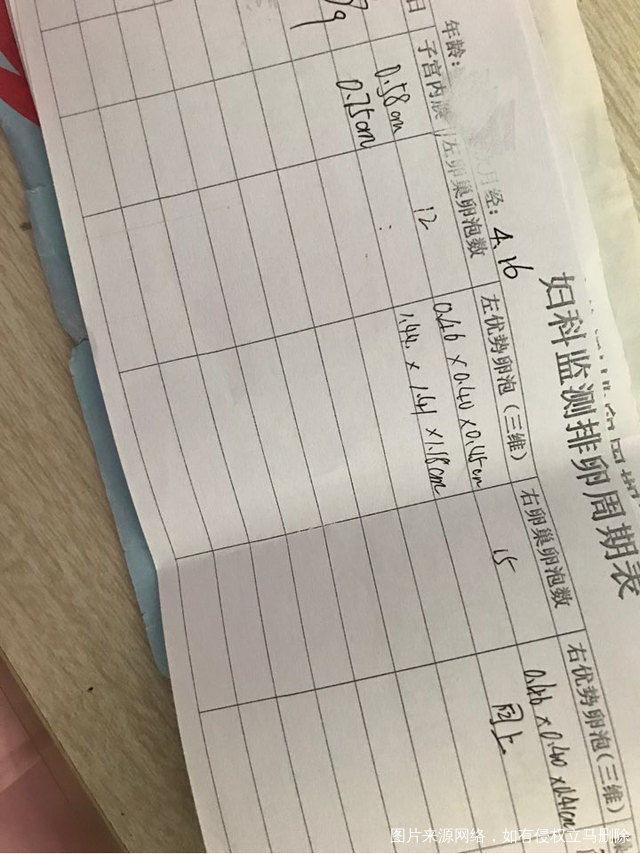 妇科监测排卵周期表
年龄：
月经：4.26
日
子宫内膜
左卵巢卵泡数
左优势卵泡（三维）
右卵巢卵泡数
右优势卵泡（三维）
0.58cm
12
0.46×0.40×0.45cm
15
0.46×0.40×0.41cm
0.75cm
1.44×1.41×1.18cm
同上
图片来源网络，如有侵权立马删除